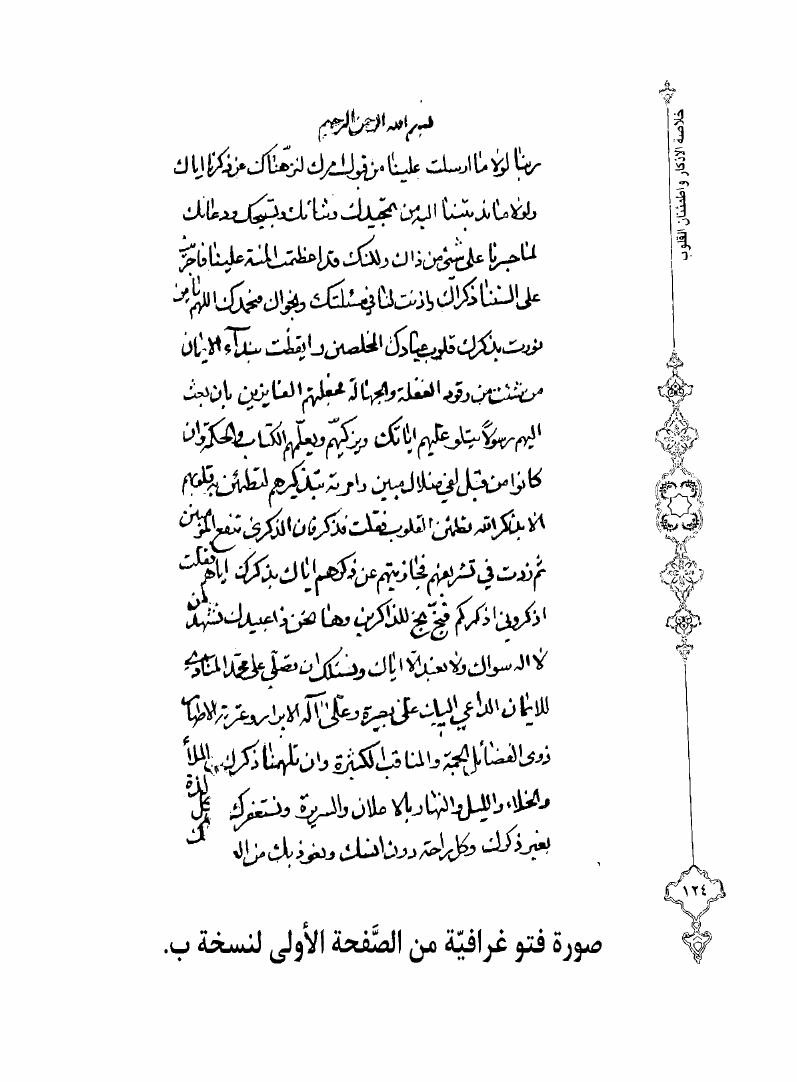 بسم الله الرحمن الرحيم
ربنا لولا ما ارسلت علينا من قول امرك لنزهناك عن ذكرنا اياك
ولولا ما ندبتنا اليه من تمجيدك وثنائك وتسبيحك ودعائك
لما جسرنا على شئ من ذاك ولكنك قد اعظمت المنة علينا فاجريت
على السنتنا ذكراك واذنت لنا في مسئلتك ونجواك فنحمدك اللهم يا من
نورت بذكرك قلوب عبادك المخلصين وايقظت بنداء الايمان
من شئت من رقود الغفلة والجهالة فجعلتهم الفايزين بان بعث
اليهم رسولاً يتلو عليهم اياتك ويزكيهم ويعلمهم الكتاب والحكمة وان
كانوا من قبل لفي ضلال مبين وامرته بتذكيرهم لتطمئن به قلوبهم
الا بذكر الله تطمئن القلوب فقلت فذكر فان الذكرى تنفع المؤمنين
ثم زدت في تشريفهم فجازيتهم عن ذكرهم اياك بذكرك اياهم فقلت
اذكروني اذكركم فبخ بخ للذاكرين وها نحن ذا عبيدك نشهد ان
لا اله سواك ولا نعبد الا اياك ونسئلك ان تصلي على محمد المنادي
للايمان الداعي اليك على بصيرة وعلى آله الابرار وعترته الاطهار
ذوى الفضائل الجمة والمناقب الكثيرة وان تلهمنا ذكرك في الملأ
والخلاء والليل والنهار بالاعلان والسريرة ونستغفرك من كل لذة
بغير ذكرك وكل راحة دون انسك ونعوذ بك من ال
خلاصة الاذكار واطمئنان القلوب
١٢٤
صورة فتو غرافيّة من الصَّفحة الأولى لنسخة ب.